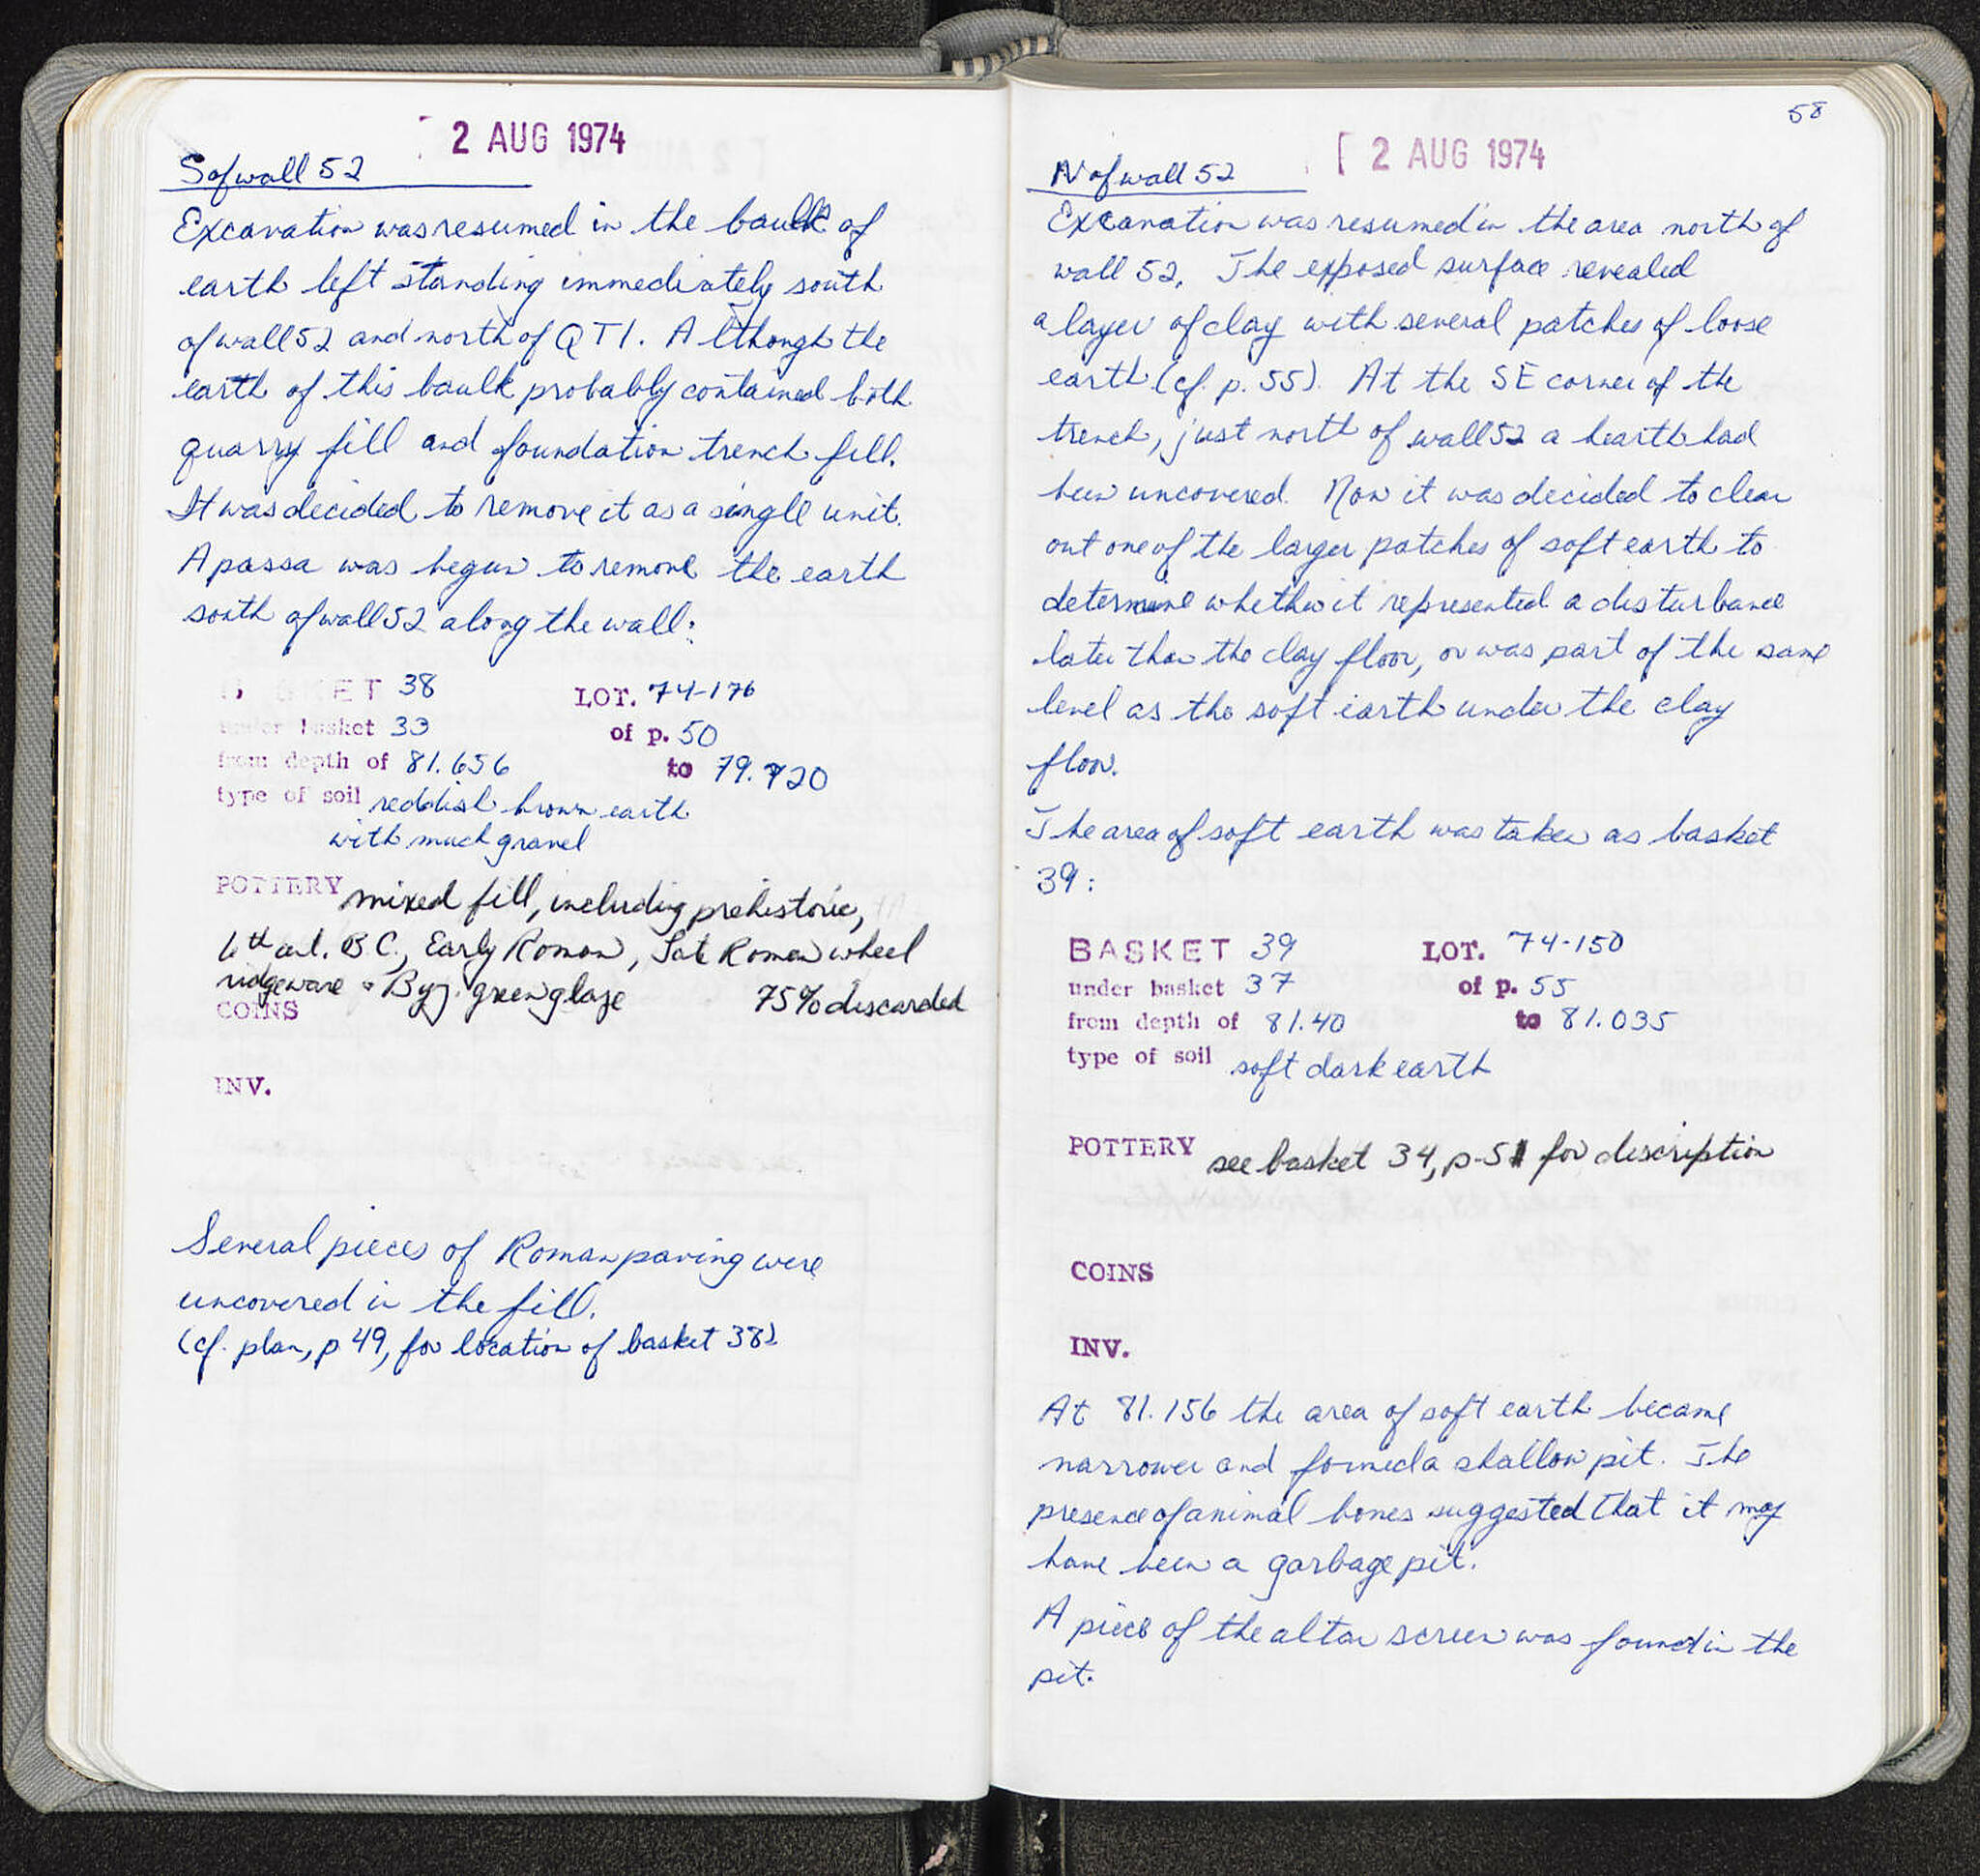 2 AUG 1974
S of wall 52
Excavation was resumed in the baulk of
earth left standing immediately south
of wall 52 and north of QT1. Although the
earth of this baulk probably contained both
quarry fill and foundation trench fill.
It was decided to remove it as a single unit.
A passa was begun to remove the earth
south of wall 52 along the wall:
BASKET 38 LOT. 74-176
under basket 33 of p. 50
from depth of 81.656 to 79.720
type of soil reddish brown earth
with much gravel
POTTERY mixed fill, including prehistoric,
6th cent. B.C., Early Roman, Late Roman wheel
ridgeware + Byz. green glaze 75% discarded
COINS
INV.
Several pieces of Roman paving were
uncovered in the fill.
(cf. plan, p 49, for location of basket 38)
58
[ 2 AUG 1974
N of wall 52
Excavation was resumed in the area north of
wall 52. The exposed surface revealed
a layer of clay with several patches of loose
earth (cf. p. 55). At the SE corner of the
trench, just north of wall 52 a hearth had
been uncovered. Now it was decided to clear
out one of the larger patches of soft earth to
determine whether it represented a disturbance
later than the clay floor, or was part of the same
level as the soft earth under the clay
floor.
The area of soft earth was taken as basket
39:
BASKET 39 LOT. 74-150
under basket 37 of p. 55
from depth of 81.40 to 81.035
type of soil soft dark earth
POTTERY see basket 34, p. 51 for description
COINS
INV.
At 81.156 the area of soft earth became
narrower and formed a shallow pit. The
presence of animal bones suggested that it may
have been a garbage pit.
A piece of the altar screen was found in the
pit.